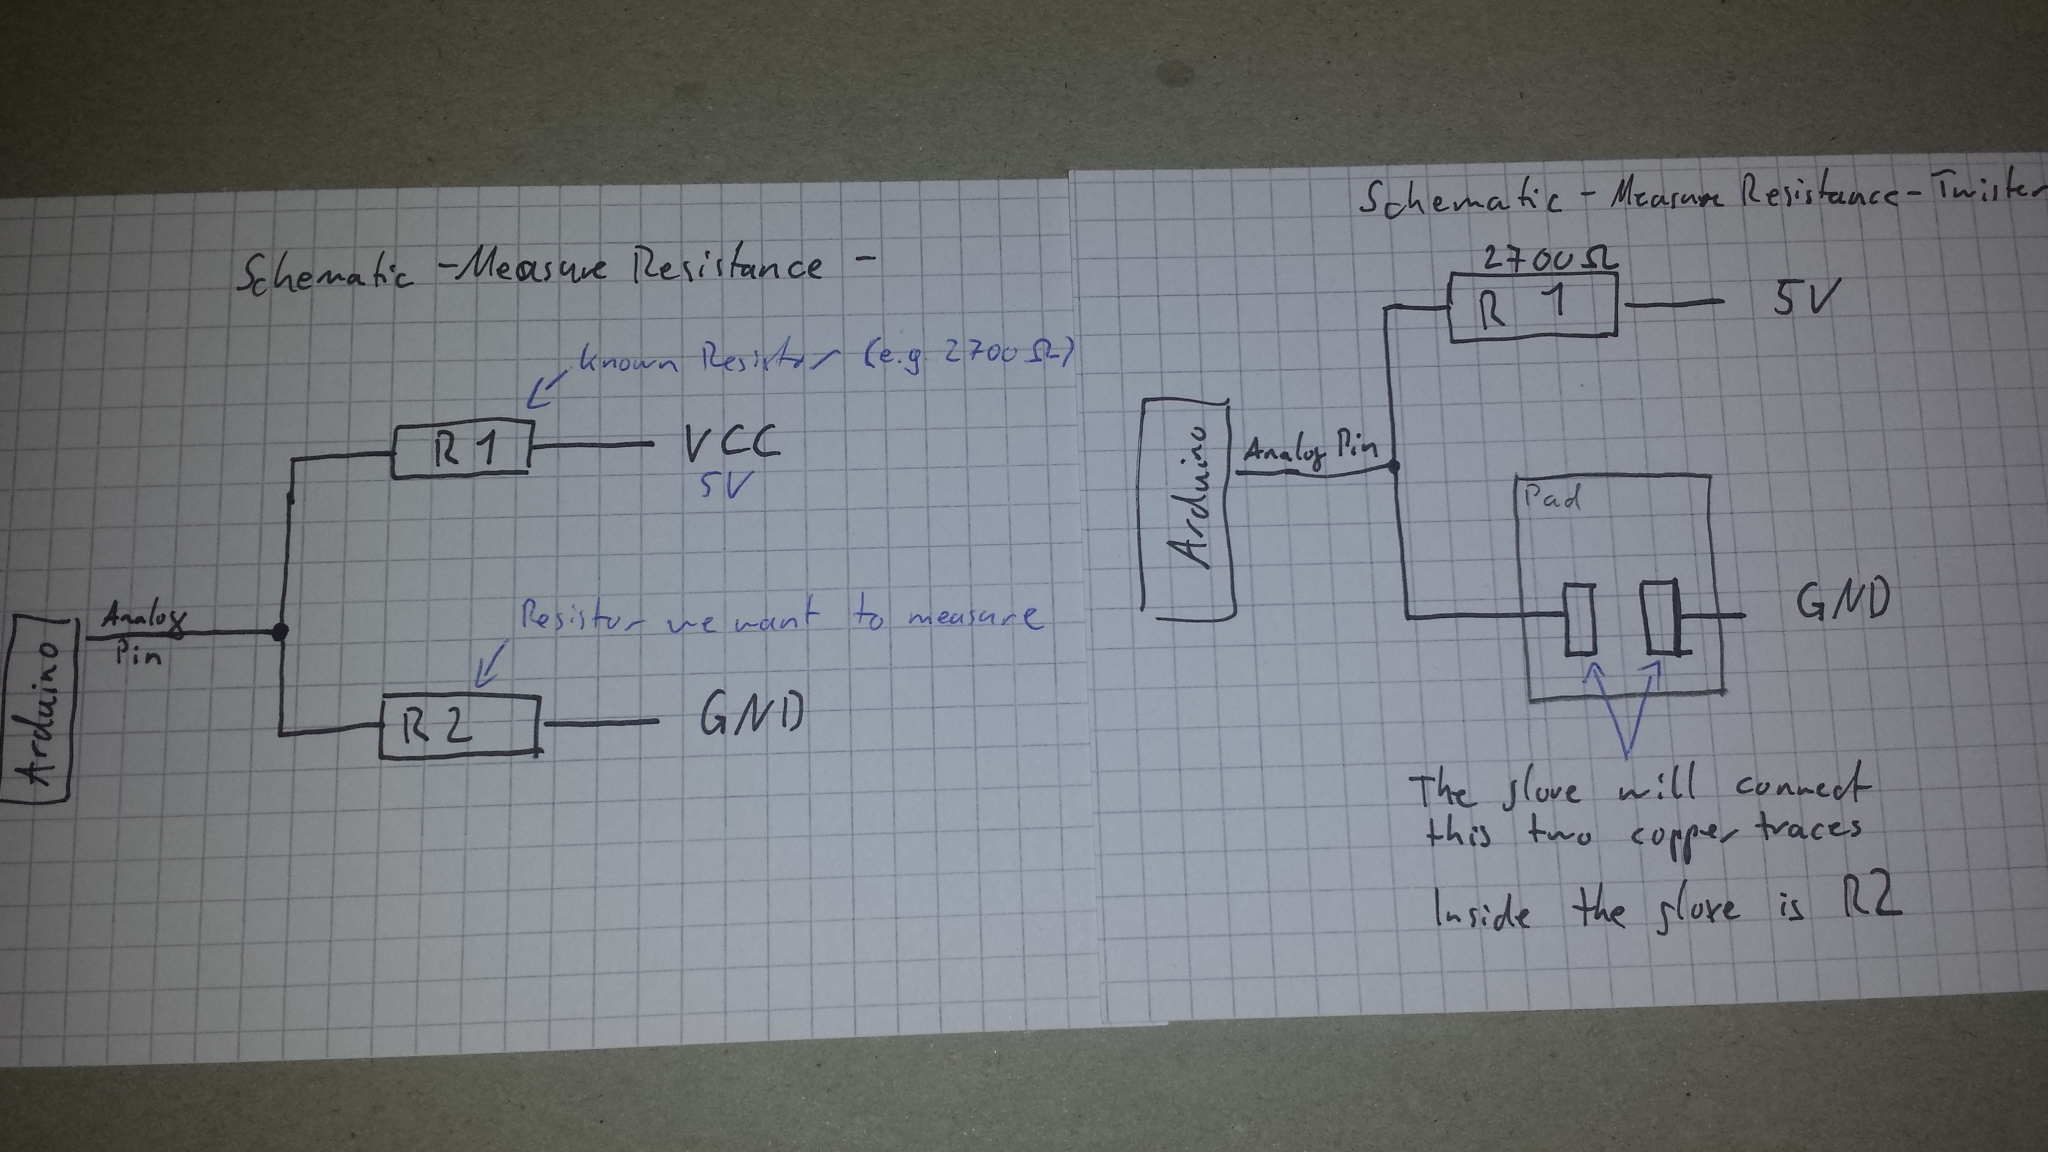 Schematic - Measure Resistance -
known Resistor (e.g 2700 Ω)
R 1
VCC
5V
Analog
Pin
Arduino
Resistor we want to measure
R 2
GND
Schematic - Measure Resistance - Twister
2700 Ω
R 1
5V
Arduino
Analog Pin
Pad
GND
The glove will connect
this two copper traces
Inside the glove is R2